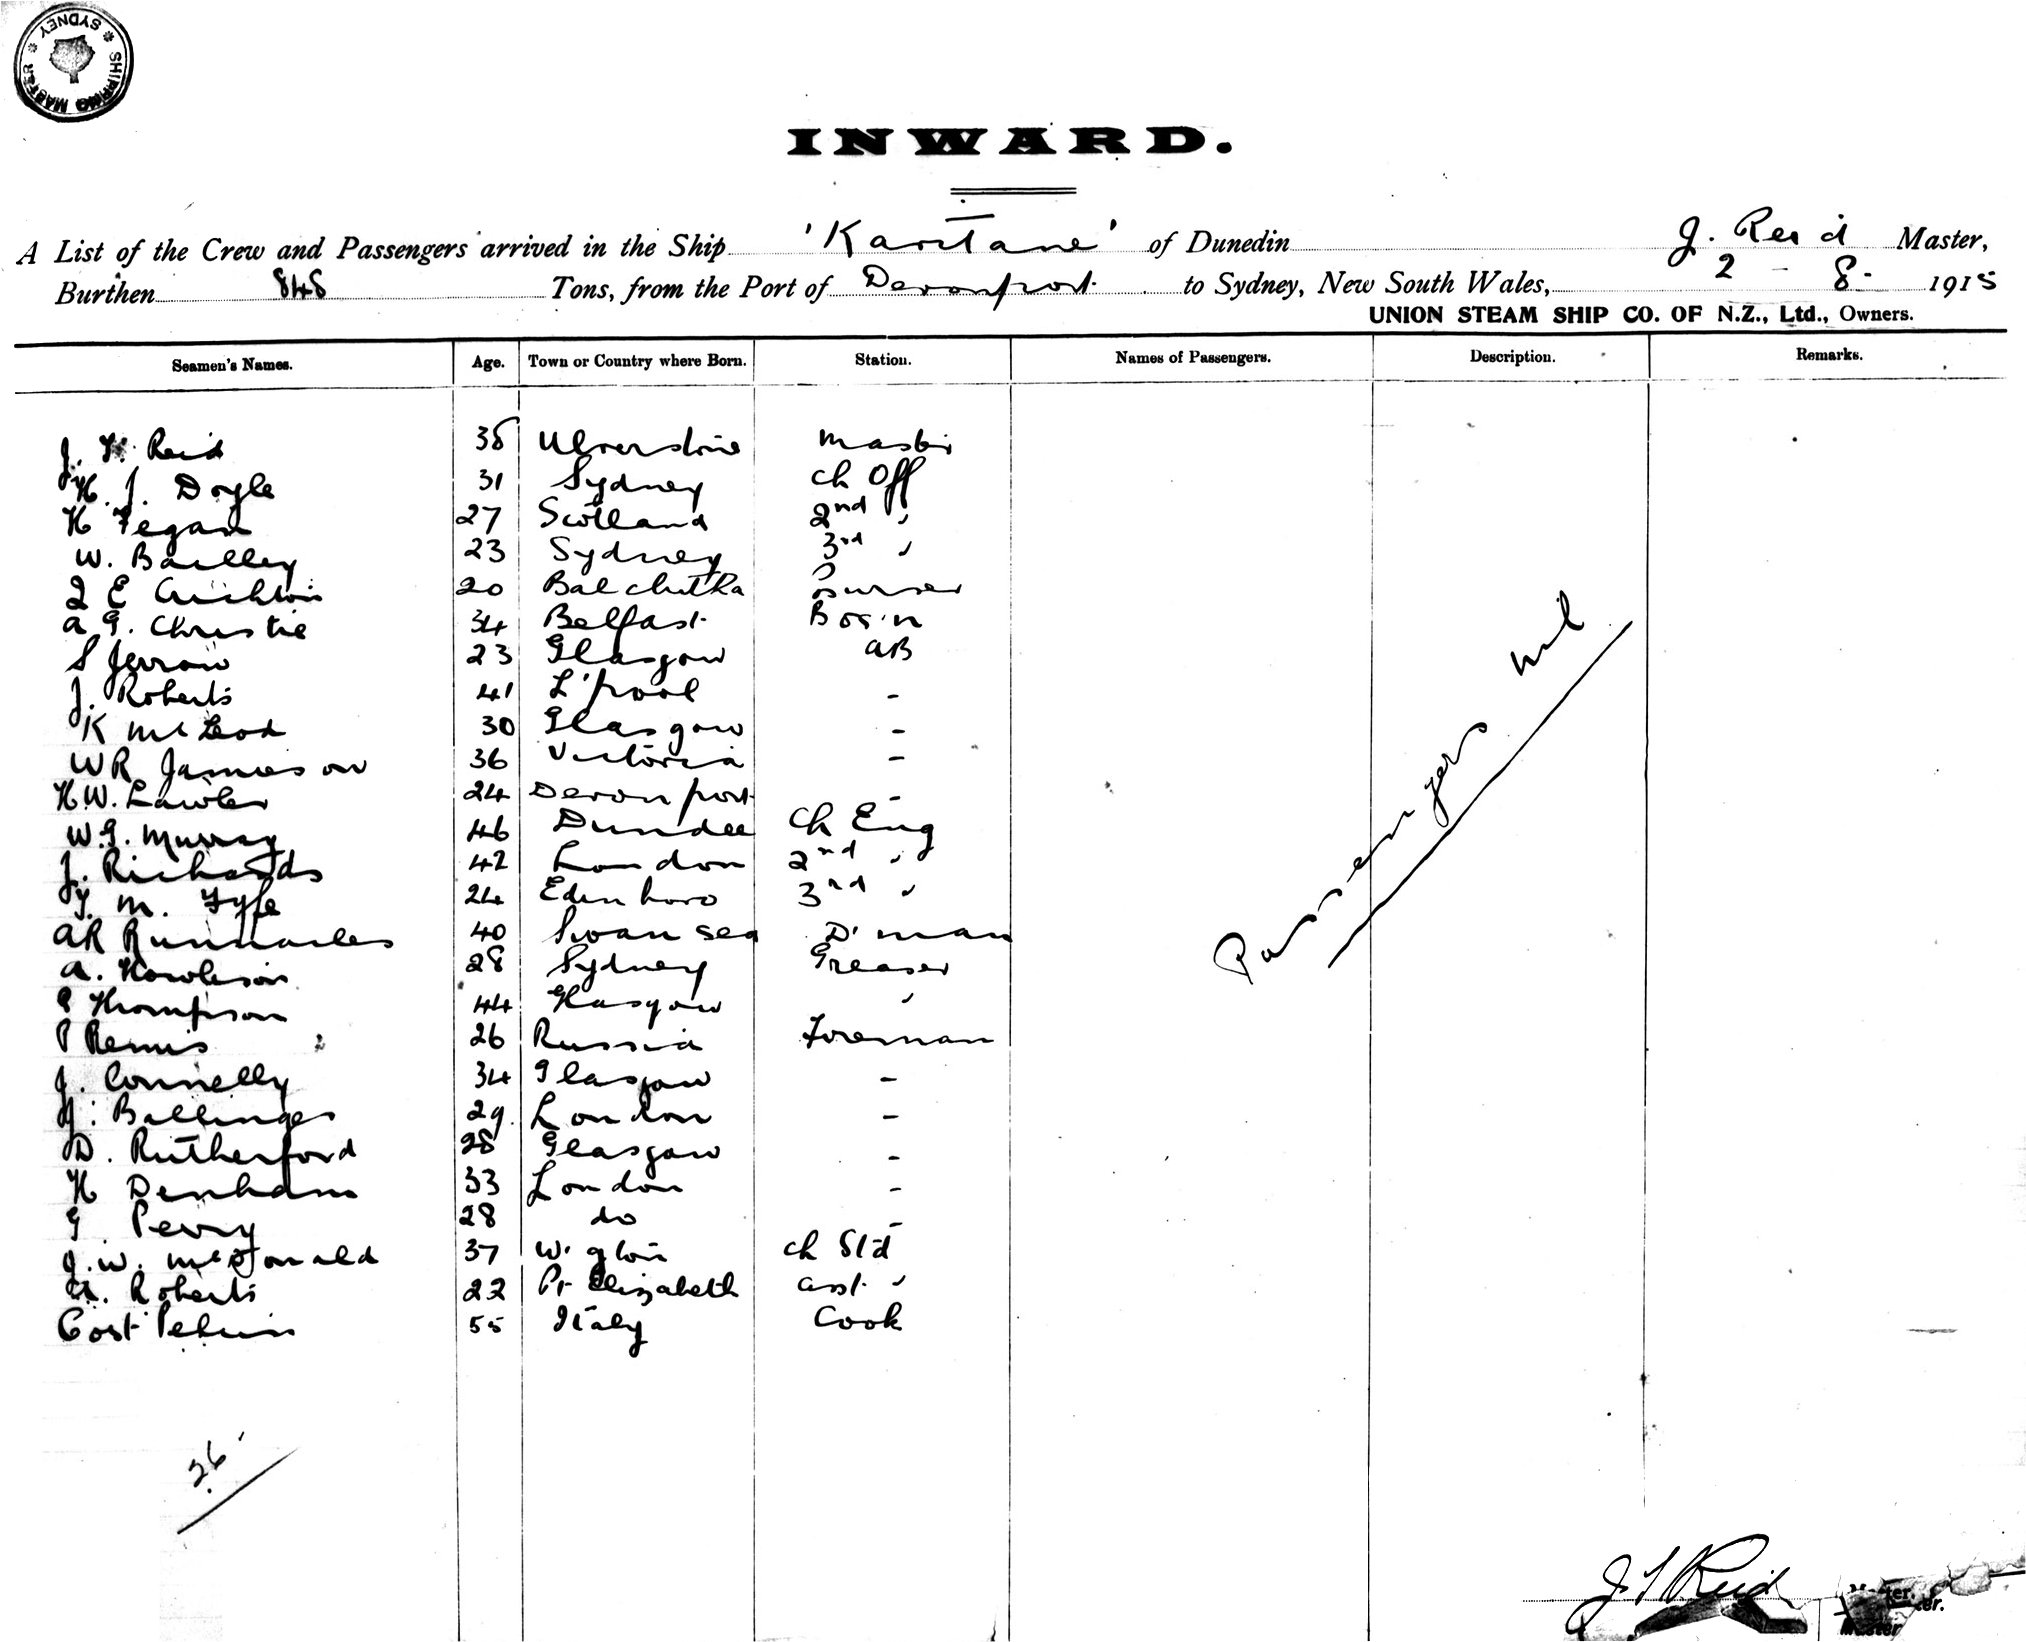 SHIPPING MASTER * SYDNEY *
INWARD.
A List of the Crew and Passengers arrived in the Ship 'Karitane' of Dunedin J. Reid Master,
Burthen 848 Tons, from the Port of Devonport to Sydney, New South Wales, 2 - 8 - 1915
UNION STEAM SHIP CO. OF N.Z., Ltd., Owners.
Seamen's Names. Age. Town or Country where Born. Station. Names of Passengers. Description. Remarks.
J. Reid 38 Ulverstone Master
H. J. Doyle 31 Sydney Ch Off
H Fegan 27 Scotland 2nd "
W. Bailley 23 Sydney 3rd "
E Crichton 20 Balclutha Purser
A G. Christie 34 Belfast Bos'n
S Jerrow 23 Glasgow AB
J. Roberts 41 L'pool -
K McLeod 30 Glasgow -
WR Jamieson 36 Victoria -
H.W. Lawler 24 Devonport -
W.G. Murray 46 Dundee Ch Eng
J. Richards 42 London 2nd "
T. M. Fyfe 24 Edinboro 3rd "
AR Runnacles 40 Swansea D'man
A. Howleson 28 Sydney Greaser
Thompson 44 Glasgow "
P Remis 26 Russia Foreman
J. Connelly 34 Glasgow -
J. Ballinger 29 London -
D. Rutherford 28 Glasgow -
H Denham 33 London -
G Perry 28 do -
J.W. McDonald 37 W'gton Ch Std
A. Roberts 22 Pt Elizabeth Asst "
Cost 55 Italy Cook
Passengers nil
26
J Reid Master.